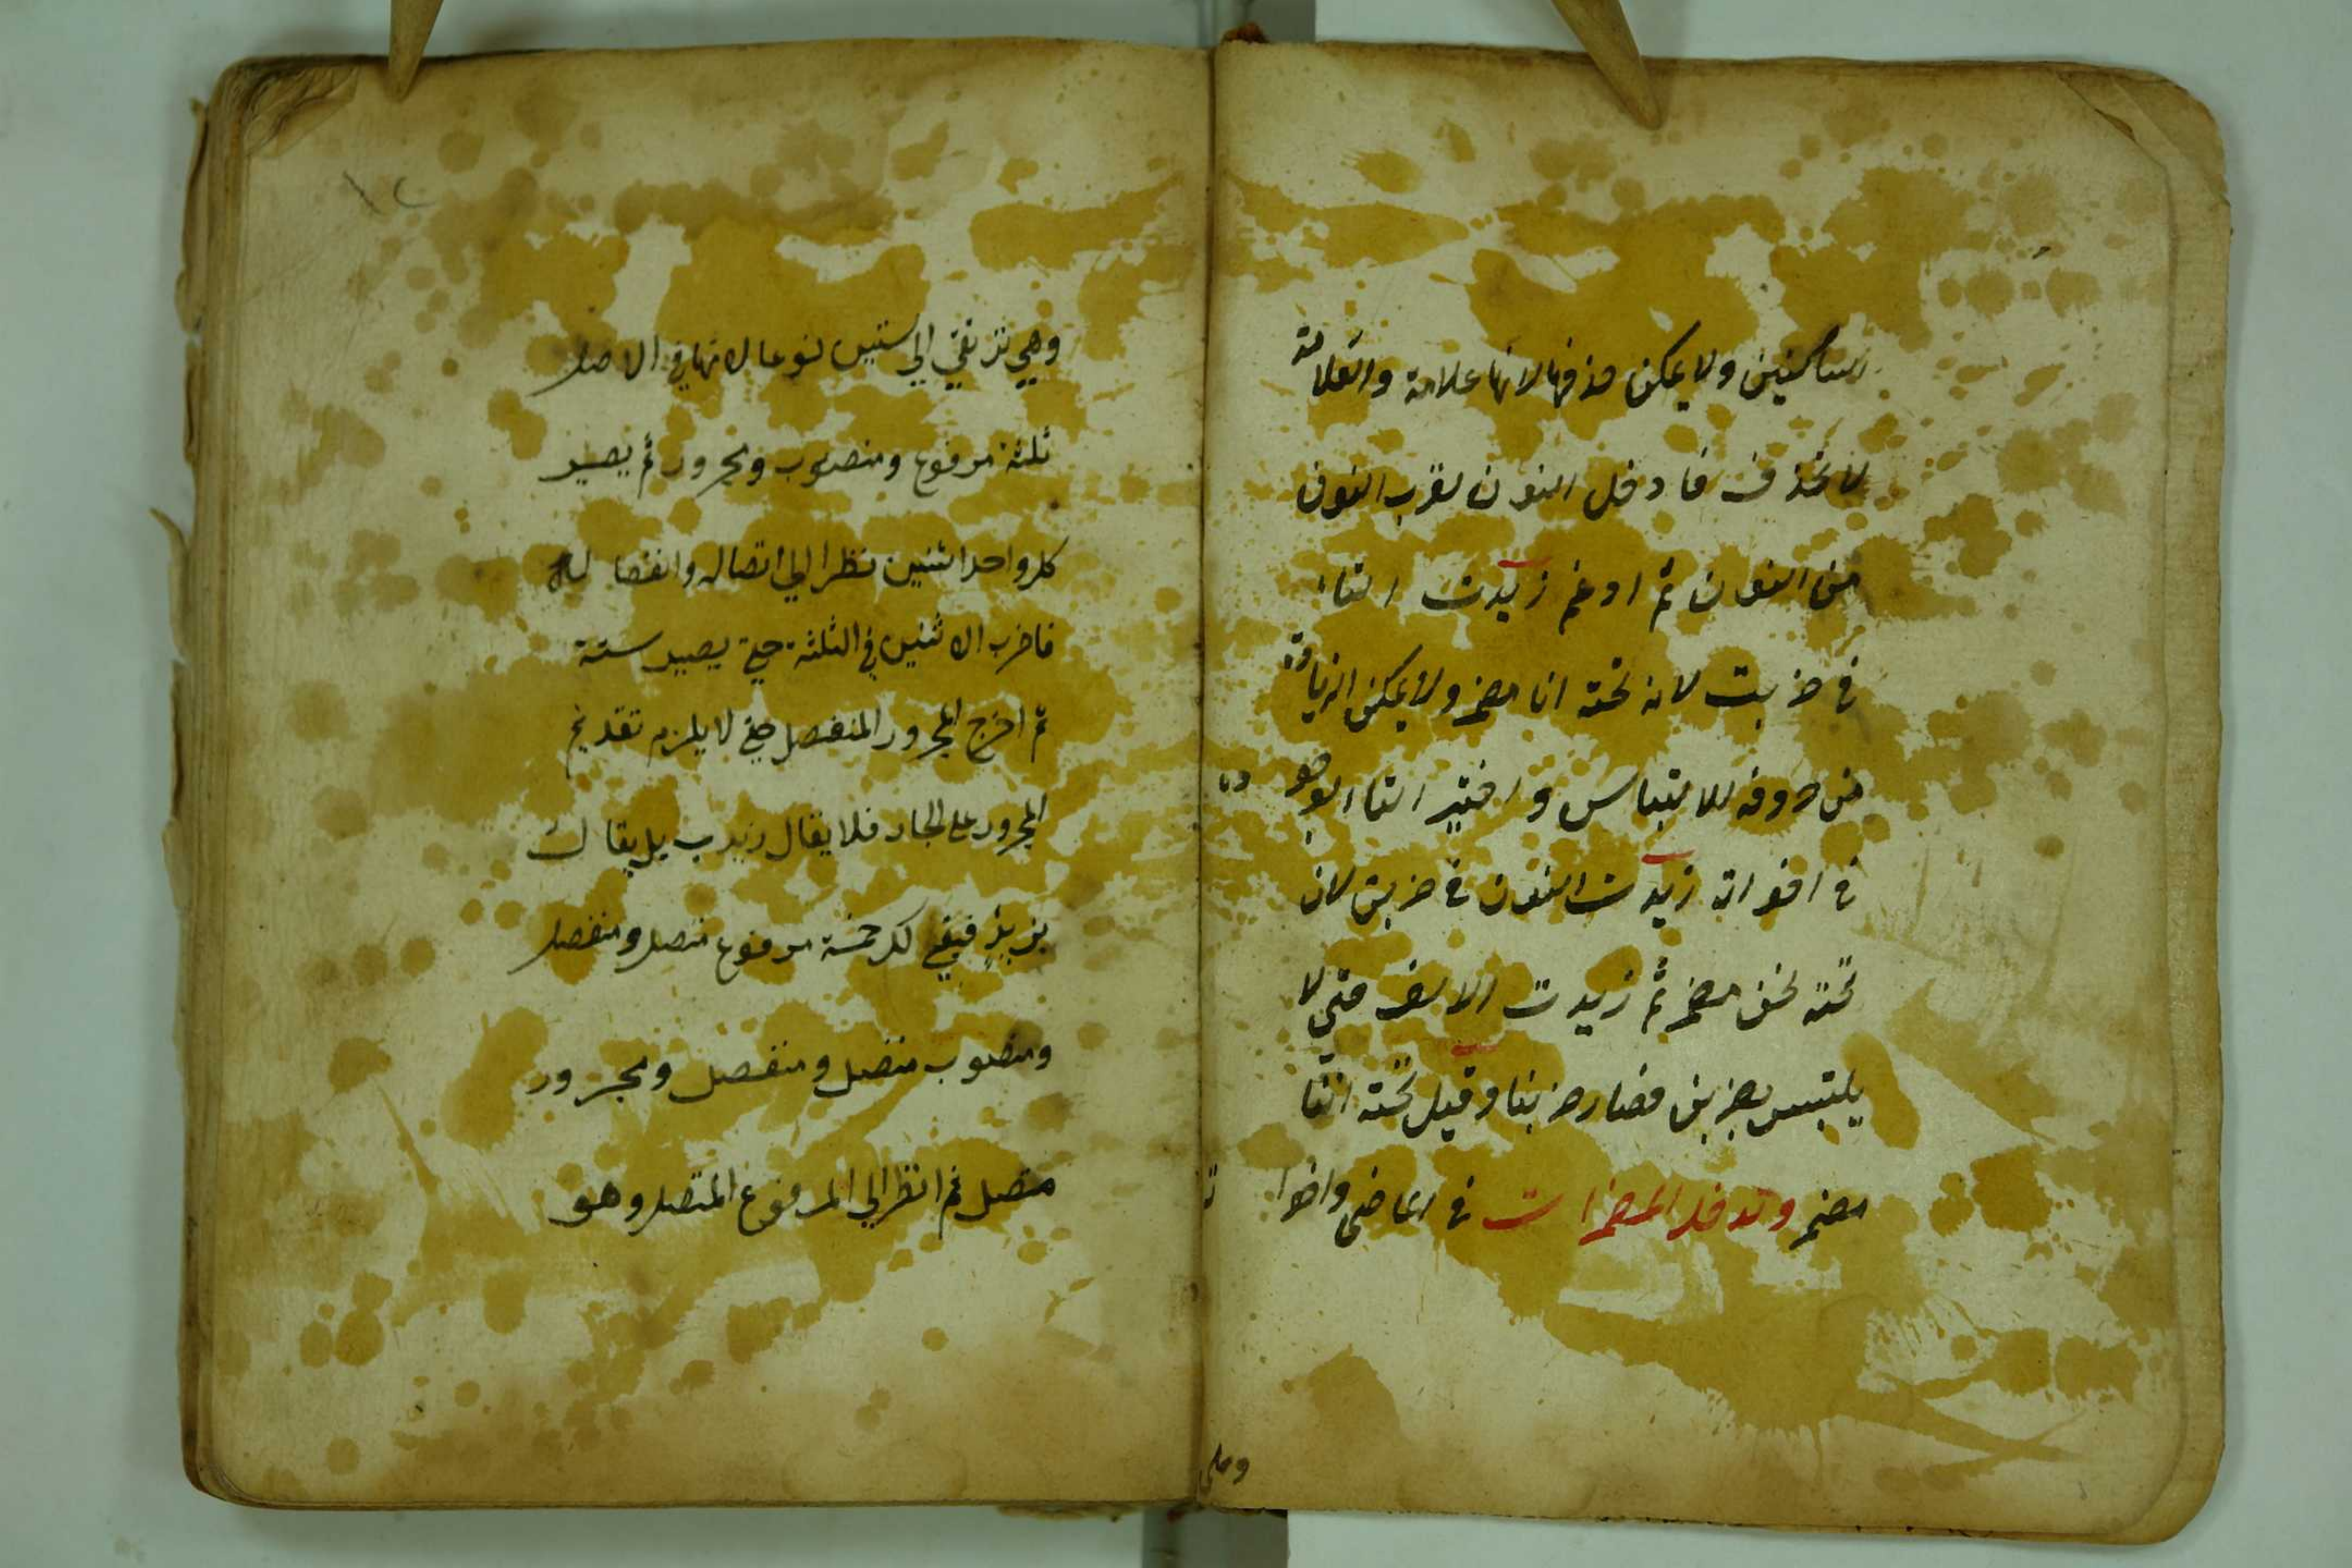 ساكنين ولا يمكن حذفها لانها علامة والعلامة
لا تحذف فادخل النون لقرب النون
من النون ثم ادغم زيدت التاء
في ضربت لان تحته انا مضمر ولا يمكن الزيادة
من حروفه للالتباس واختير التاء لوجوده
في اخواته زيدت النون في ضربن لان
تحته نحن مضمر ثم زيدت الالف حتي لا
يلتبس بضربن فصار ضربنا وقيل تحته اننا
مضمر وتدخل المضمرات في الماضي واخواته
وهي
١٢
وهي ترتقي الي ستين نوعا لانها في الاصل
ثلثة مرفوع ومنصوب ومجرور ثم يصير
كل واحد اثنين نظرا الي اتصاله وانفصاله
فاضرب الاثنين في الثلثة حتي يصير ستة
ثم اخرج المجرور المنفصل حتي لا يلزم تقديم
المجرور علي الجار فلا يقال زيد ب بل يقال
بزيد فبقي لك خمسة مرفوع متصل ومنفصل
ومنصوب متصل ومنفصل ومجرور
متصل ثم انظر الي المرفوع المتصل وهو